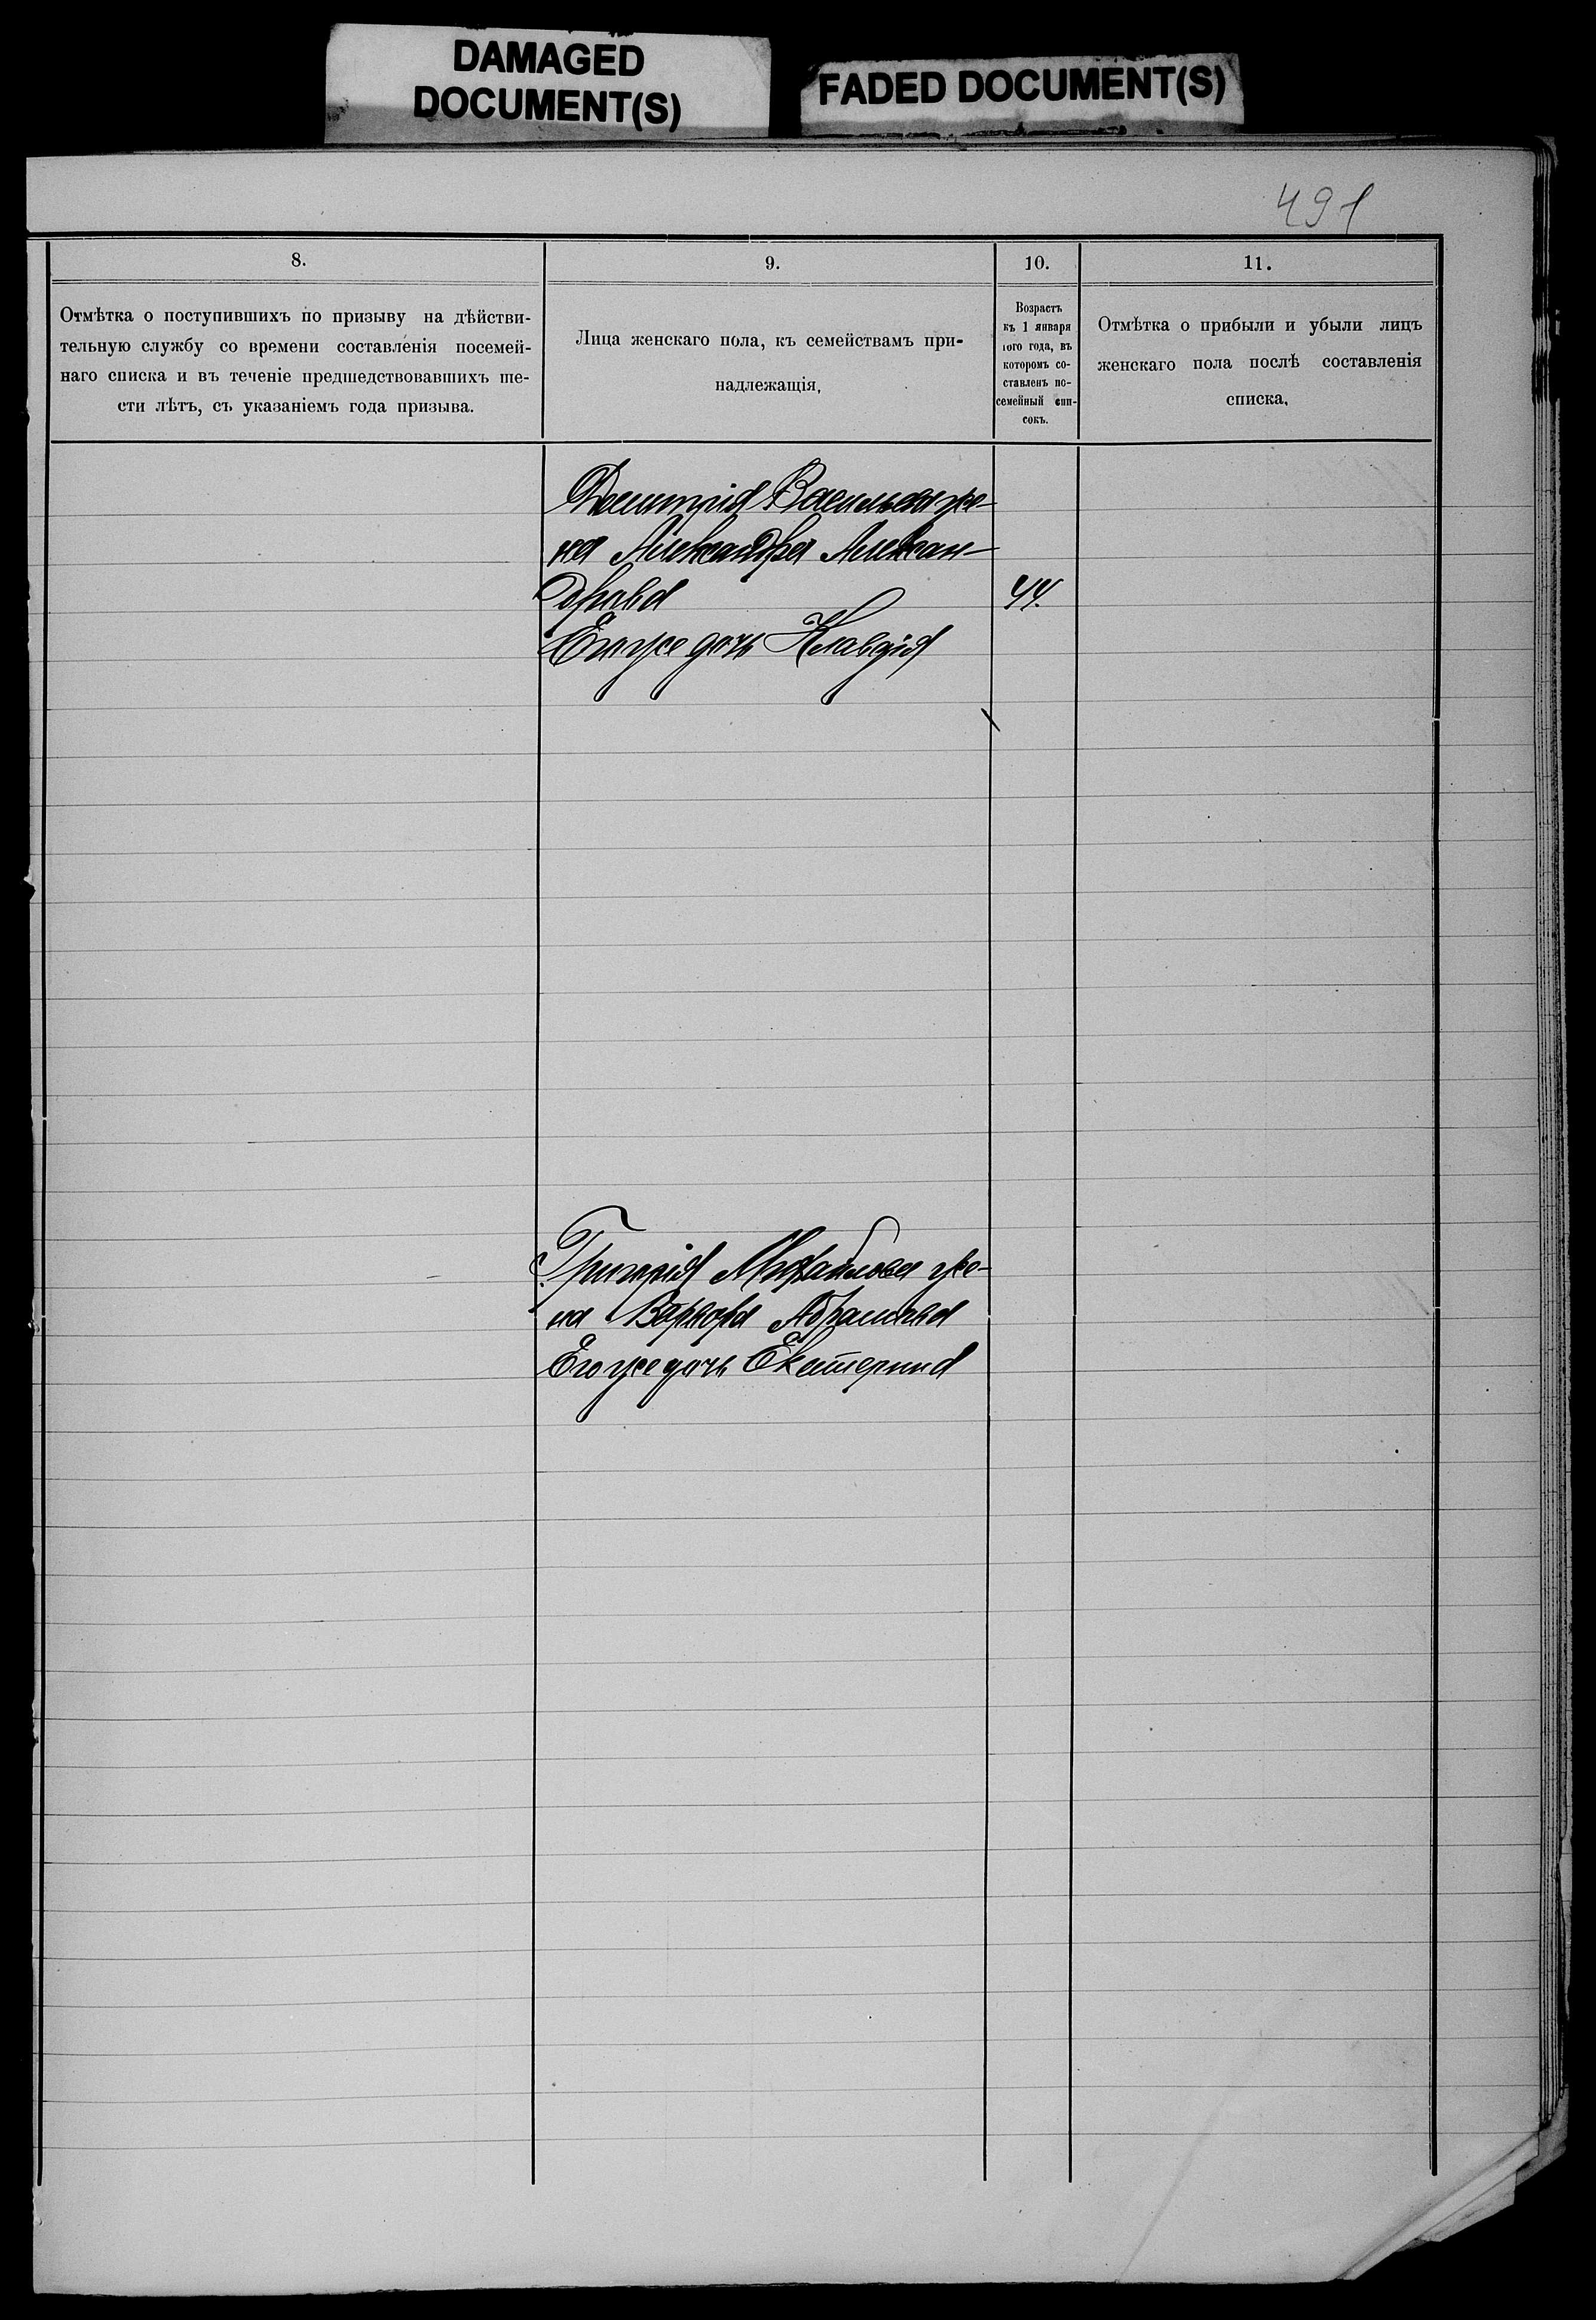 DAMAGED
DOCUMENT(S)
FADED DOCUMENT(S)
491
8.
Отмѣтка о поступившихъ по призыву на дѣйстви-
тельную службу со времени составленія посемей-
наго списка и въ теченіе предшедствовавшихъ ше-
сти лѣтъ, съ указаніемъ года призыва.
9.
Лица женскаго пола, къ семействамъ при-
надлежащія.
10.
Возрастъ
къ 1 января
того года, въ
которомъ со-
ставленъ по-
семейный спи-
сокъ.
11.
Отмѣтка о прибыли и убыли лицъ
женскаго пола послѣ составленія
списка.
Дмитрія Васильева же-
на Александра Алексан-
дрова 44.
Его же дочь Клавдія
Григорія Михайлова же-
на Варвара Абрамова
Его же дочь Екатерина